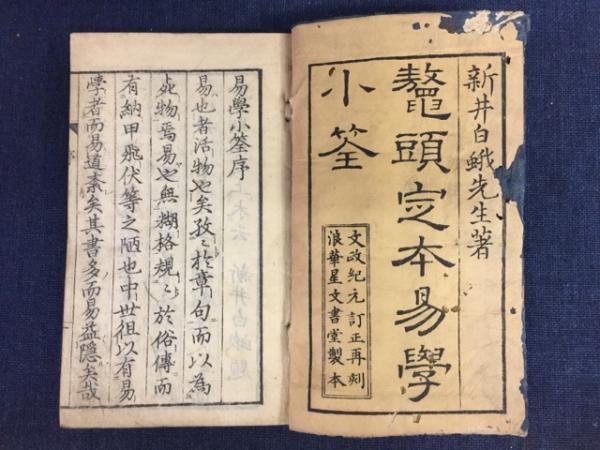 新井白蛾先生著
鼇頭定本易學
小筌
文政紀元訂正再刻
浪華星文書堂製本
易學小筌序
易也者活物也矣孜〻於章句而以為
死物焉易也無糊格規〻於俗傳而
有納甲飛伏等之陋也中世徂以有易
學者而易道紊矣其書多而易益隱矣哉